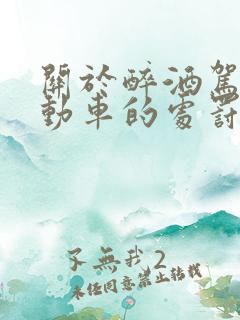 關於醉酒駕
動車的處討
不無我2
未經同意禁止轉載